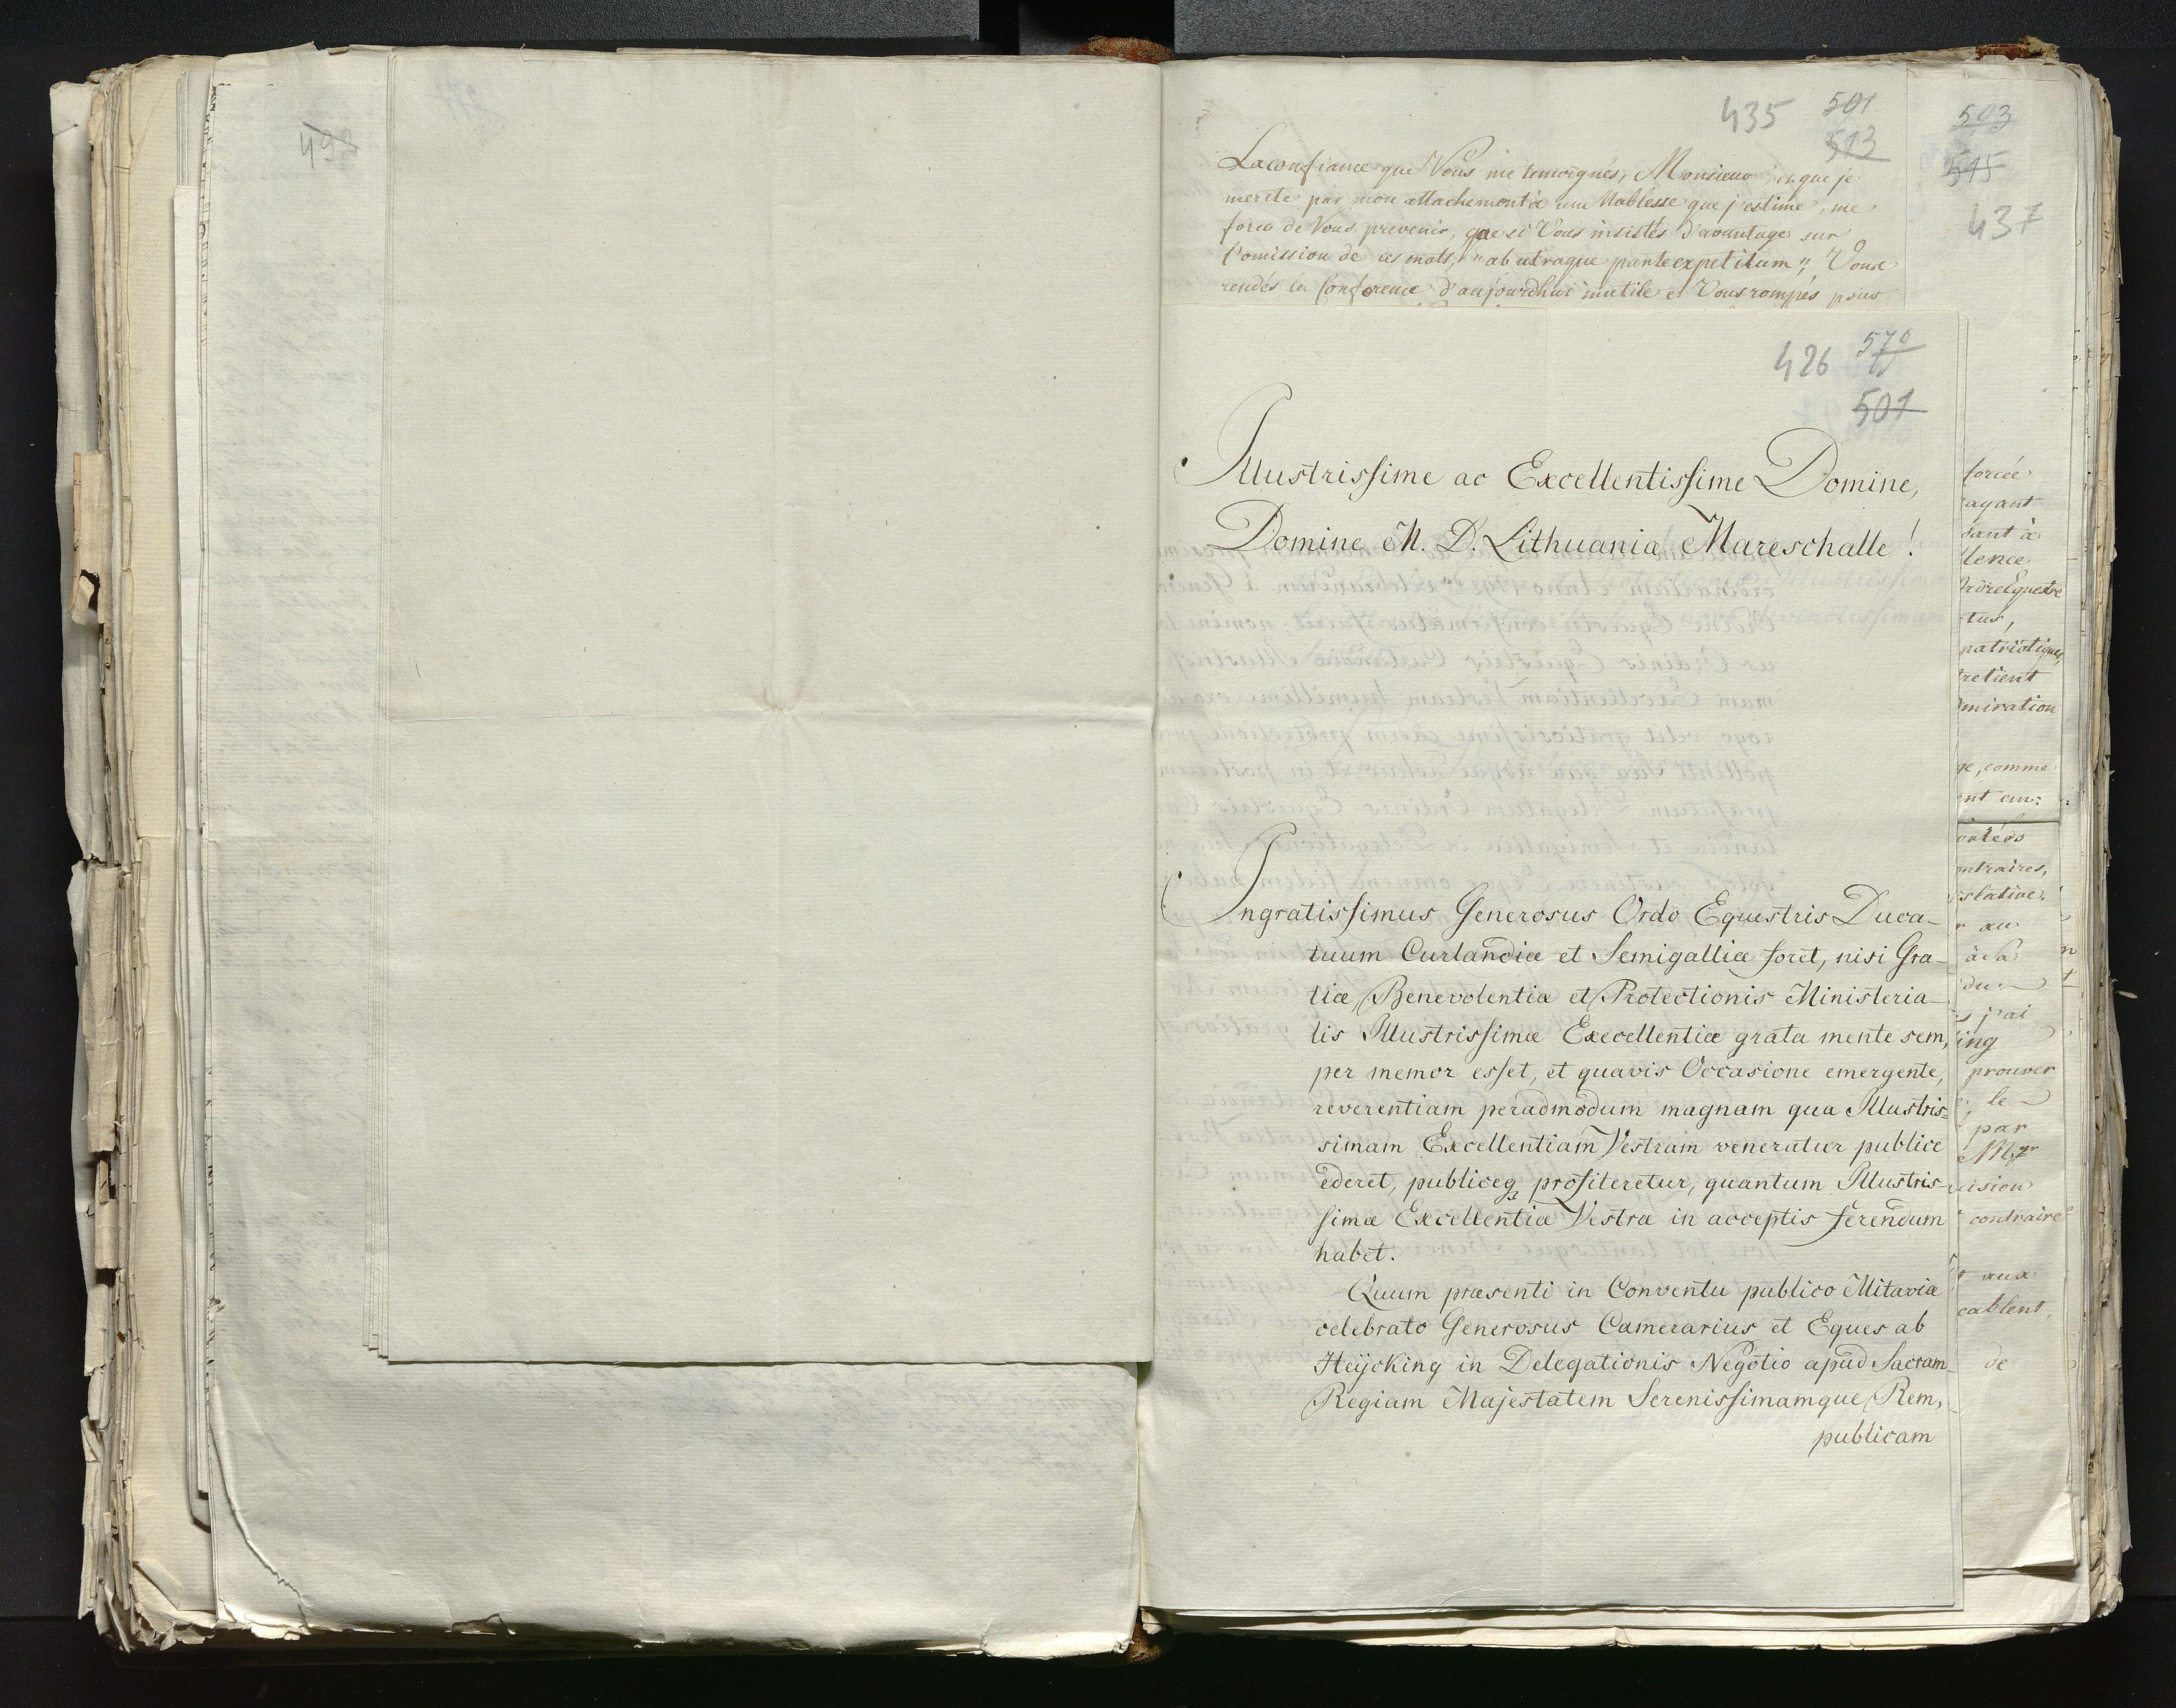 498
435 501
513
Laconfiance que Vous me temoignés, Monsieur et que je
merite par mon attachement à une Noblesse que j'estime, me
force de Vous prevenir, que si Vous insistés d'avantage sur
l'omission de ces mots, "ab utraque parte expetitum", Vous
rendés la Conference d'aujourdhui inutile et Vous rompés pour
503
515
437
426 570
501
Illustrissime ac Excellentissime Domine,
Domine M. D. Lithuaniæ Mareschalle!
Ingratissimus Generosus Ordo Equestris Duca-
tuum Curlandiæ et Semigalliæ foret, nisi Gra-
tiæ, Benevolentiæ et Protectionis Ministeria-
lis Illustrissimæ Execellentiæ grata mente sem,
per memor esset, et quavis Occasione emergente,
reverentiam peradmodum magnam qua Illustris-
simam Excellentiam Vestram veneratur publice
ederet, publiceq profiteretur, quantum Illustris-
simæ Excellentiæ Vestræ in acceptis ferendum
habet.
Quum præsenti in Conventu publico Mitaviæ
celebrato Generosus Camerarius et Eques ab
Heÿcking in Delegationis Negotio apud Sacram
Regiam Majestatem Serenissimamque Rem,
publicam
forcée
ayant
sant à
lence
Ordre Equestre
tus,
patriotiques,
tretient
miration
ge, comme
ent em:
ontées
ontraires,
islative.
r au
à la
du
s j'ai
ing
prouver
le
par
Mgr
cision
contraire
t aux
cablent,
de